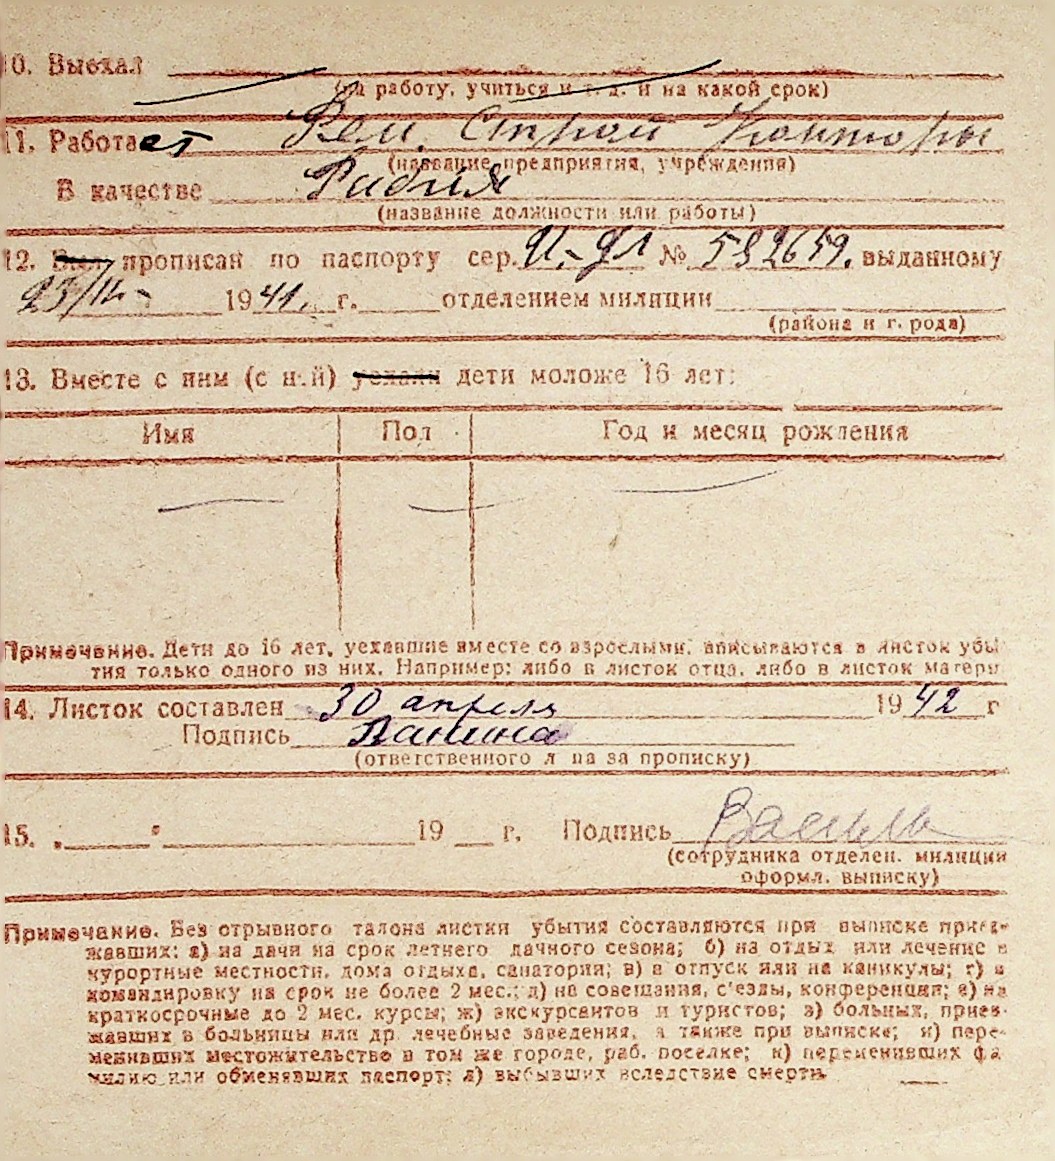 10. Выехал
(на работу, учиться и т. д. и на какой срок)
11. Работает Рем. Строй Конторы
(название предприятия, учреждения)
В качестве Рабочая
(название должности или работы)
12. Был прописан по паспорту сер. № 592659. выданному
23/III- 1941. г. отделением милиции
(района и города)
13. Вместе с ним (с ней) уехали дети моложе 16 лет:
Имя Пол Год и месяц рождения
Примечание. Дети до 16 лет, уехавшие вместе со взрослыми, вписываются в листок убы-
тия только одного из них. Например: либо в листок отца, либо в листок матери
14. Листок составлен 30 апреля 1942 г
Подпись Панина
(ответственного лица за прописку)
15. 19 г. Подпись
(сотрудника отделен. милиции
оформл. выписку)
Примечание. Без отрывного талона листки убытия составляются при выписке приез-
жавших: а) на дачи на срок летнего дачного сезона; б) на отдых или лечение в
курортные местности, дома отдыха, санатории; в) в отпуск или на каникулы; г) в
командировку на срок не более 2 мес.; д) на совещания, с'езды, конференции; е) на
краткосрочные до 2 мес. курсы; ж) экскурсантов и туристов; з) больных, приез-
жавших в больницы или др. лечебные заведения, а также при выписке; и) пере-
менивших местожительство в том же городе, раб. поселке; к) переменивших фа
милию или обменявших паспорт; л) выбывших вследствие смерти.